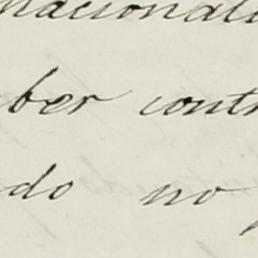 nacionali
ber contr
do no